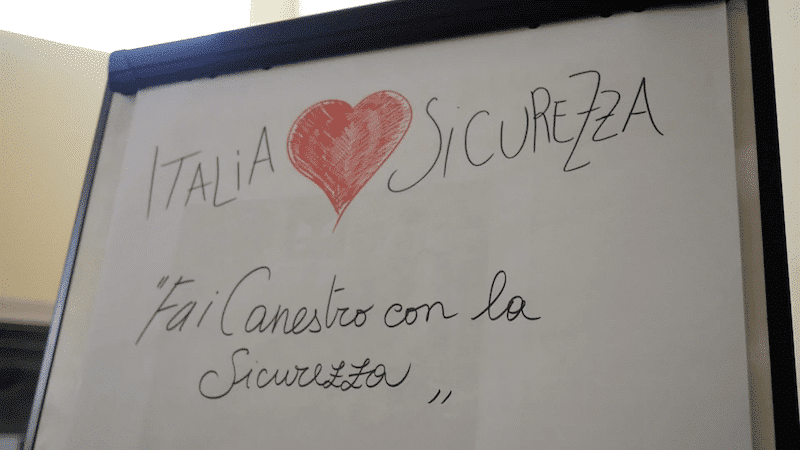 ITALIA SICUREZZA
"Fai Canestro con la
Sicurezza „